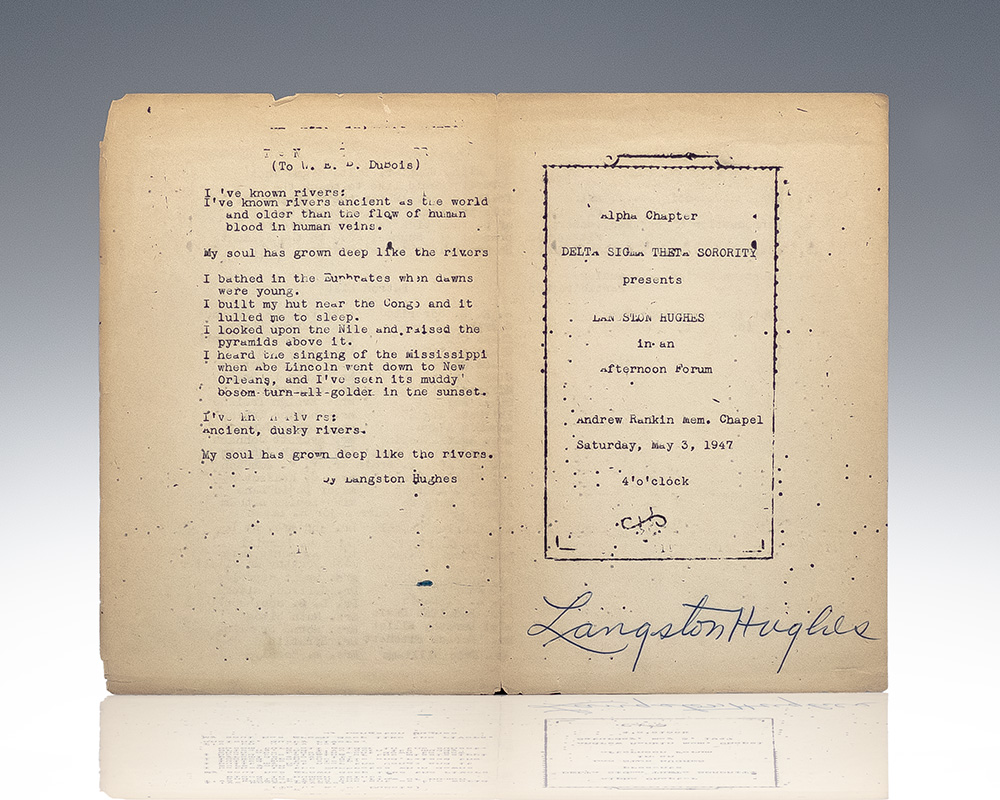 (To W. E. B. DuBois)
I've known rivers:
I've known rivers ancient as the world
and older than the flow of human
blood in human veins.
My soul has grown deep like the rivers
I bathed in the Euphrates when dawns
were young.
I built my hut near the Congo and it
lulled me to sleep.
I looked upon the Nile and raised the
pyramids above it.
I heard the singing of the Mississippi
when Abe Lincoln went down to New
Orleans, and I've seen its muddy
bosom turn all golden in the sunset.
I've known rivers:
Ancient, dusky rivers.
My soul has grown deep like the rivers.
By Langston Hughes
Alpha Chapter
DELTA SIGMA THETA SORORITY
presents
LANGSTON HUGHES
in an
Afternoon Forum
Andrew Rankin Mem. Chapel
Saturday, May 3, 1947
4'o'clock
Langston Hughes